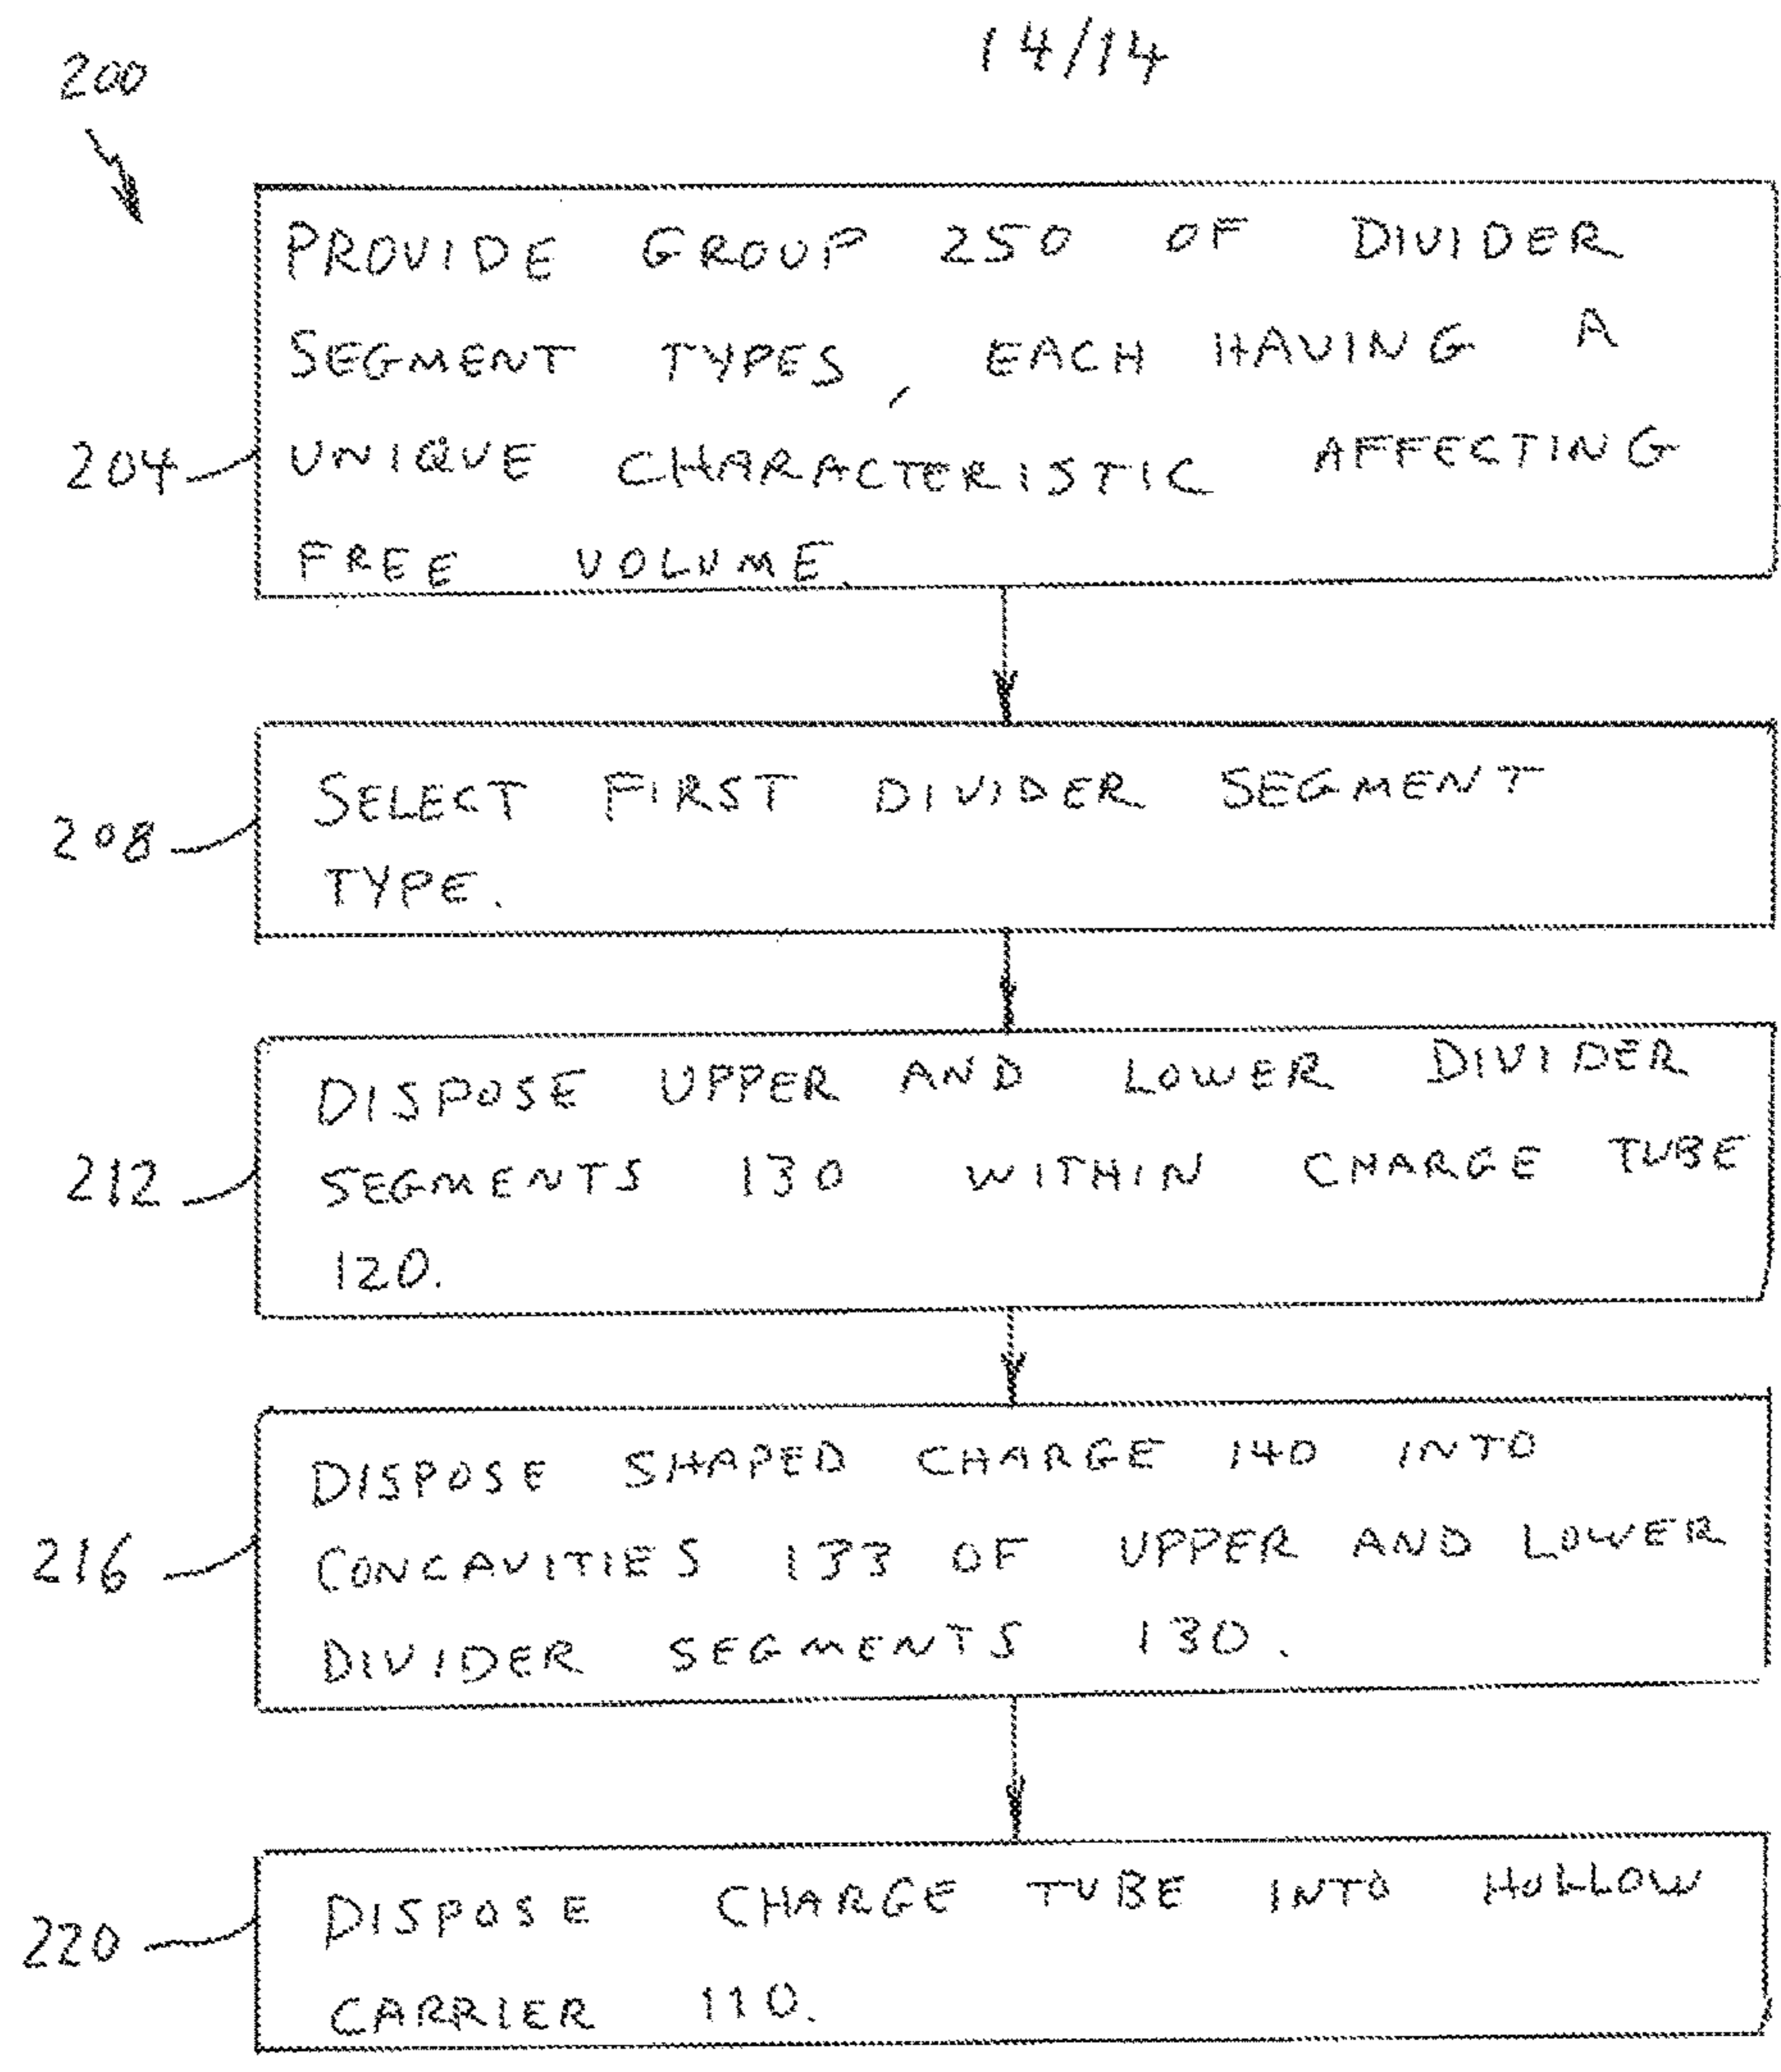 14/14
200
PROVIDE GROUP 250 OF DIVIDER
SEGMENT TYPES, EACH HAVING A
204 UNIQUE CHARACTERISTIC AFFECTING
FREE VOLUME.
SELECT FIRST DIVIDER SEGMENT
208
TYPE.
DISPOSE UPPER AND LOWER DIVIDER
212 SEGMENTS 130 WITHIN CHARGE TUBE
120.
DISPOSE SHAPED CHARGE 140 INTO
216 CONCAVITIES 133 OF UPPER AND LOWER
DIVIDER SEGMENTS 130.
DISPOSE CHARGE TUBE INTO HOLLOW
220
CARRIER 110.